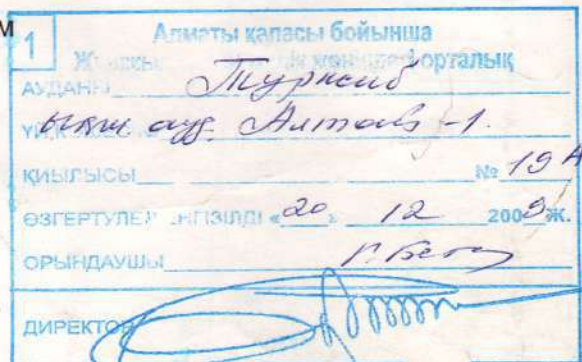 м
1
Алматы қаласы бойынша
орталық
АУДАНЫ Турксиб
ықш ауд. Алтай-1.
ҚИЫЛЫСЫ № 19А
ӨЗГЕРТУЛЕР ЕНГІЗІЛДІ «20» 12 2009 Ж.
ОРЫНДАУШЫ
ДИРЕКТОР